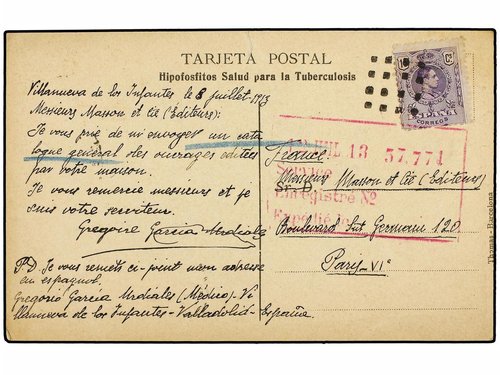 TARJETA POSTAL
Hipofosfitos Salud para la Tuberculosis
Villanueva de los Infantes le 8 juillet, 1913
Messieurs Masson et cie (Editeurs):
Je vous prie de m'envoyer un cata
logue général des ouvrages édités
par votre maison.
Je vous remercie messieurs et je
suis votre serviteur.
Gregorio Garcia Urdiales
PD. Je vous remets ci-joint mon adresse
en espagnol.
Gregorio Garcia Urdiales (Médico) - Vi
llanueva de los Infantes - Valladolid - España.
CORREOS
JUIL 13 57,771
Service
Enregistré Nº
Expédié le
France
Sr. D. Messieurs Masson et cie (Editeurs)
Boulevard Snt Germain 120.
Paris - VIe
Thomas - Barcelona